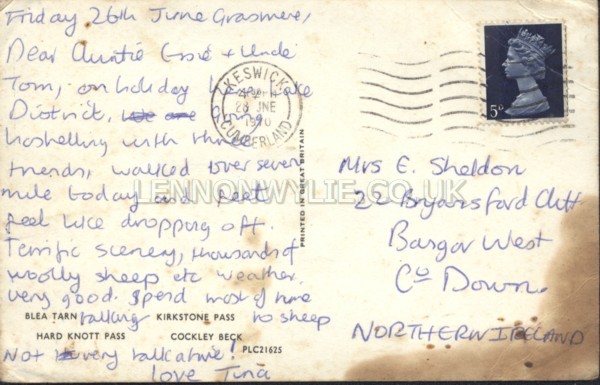 Friday 26th June Grasmere,
Dear Auntie Essie + Uncle
Tom, on holiday Lake
District, we are
hostelling with three
friends, walked over seven
mile today and feet
feel like dropping off.
Terrific scenery, thousands of
woolly sheep etc weather
very good. Spend most of time
talking to sheep
Not very talkative!
love Tina
BLEA TARN KIRKSTONE PASS
HARD KNOTT PASS COCKLEY BECK
PLC21625
PRINTED IN GREAT BRITAIN
KESWICK
28 JNE
1970
CUMBERLAND
5D
Mrs E. Sheldon
2 Bryansford
Bangor West
Co Down.
NORTHERN IRELAND
LENNONWYLIE.CO.UK